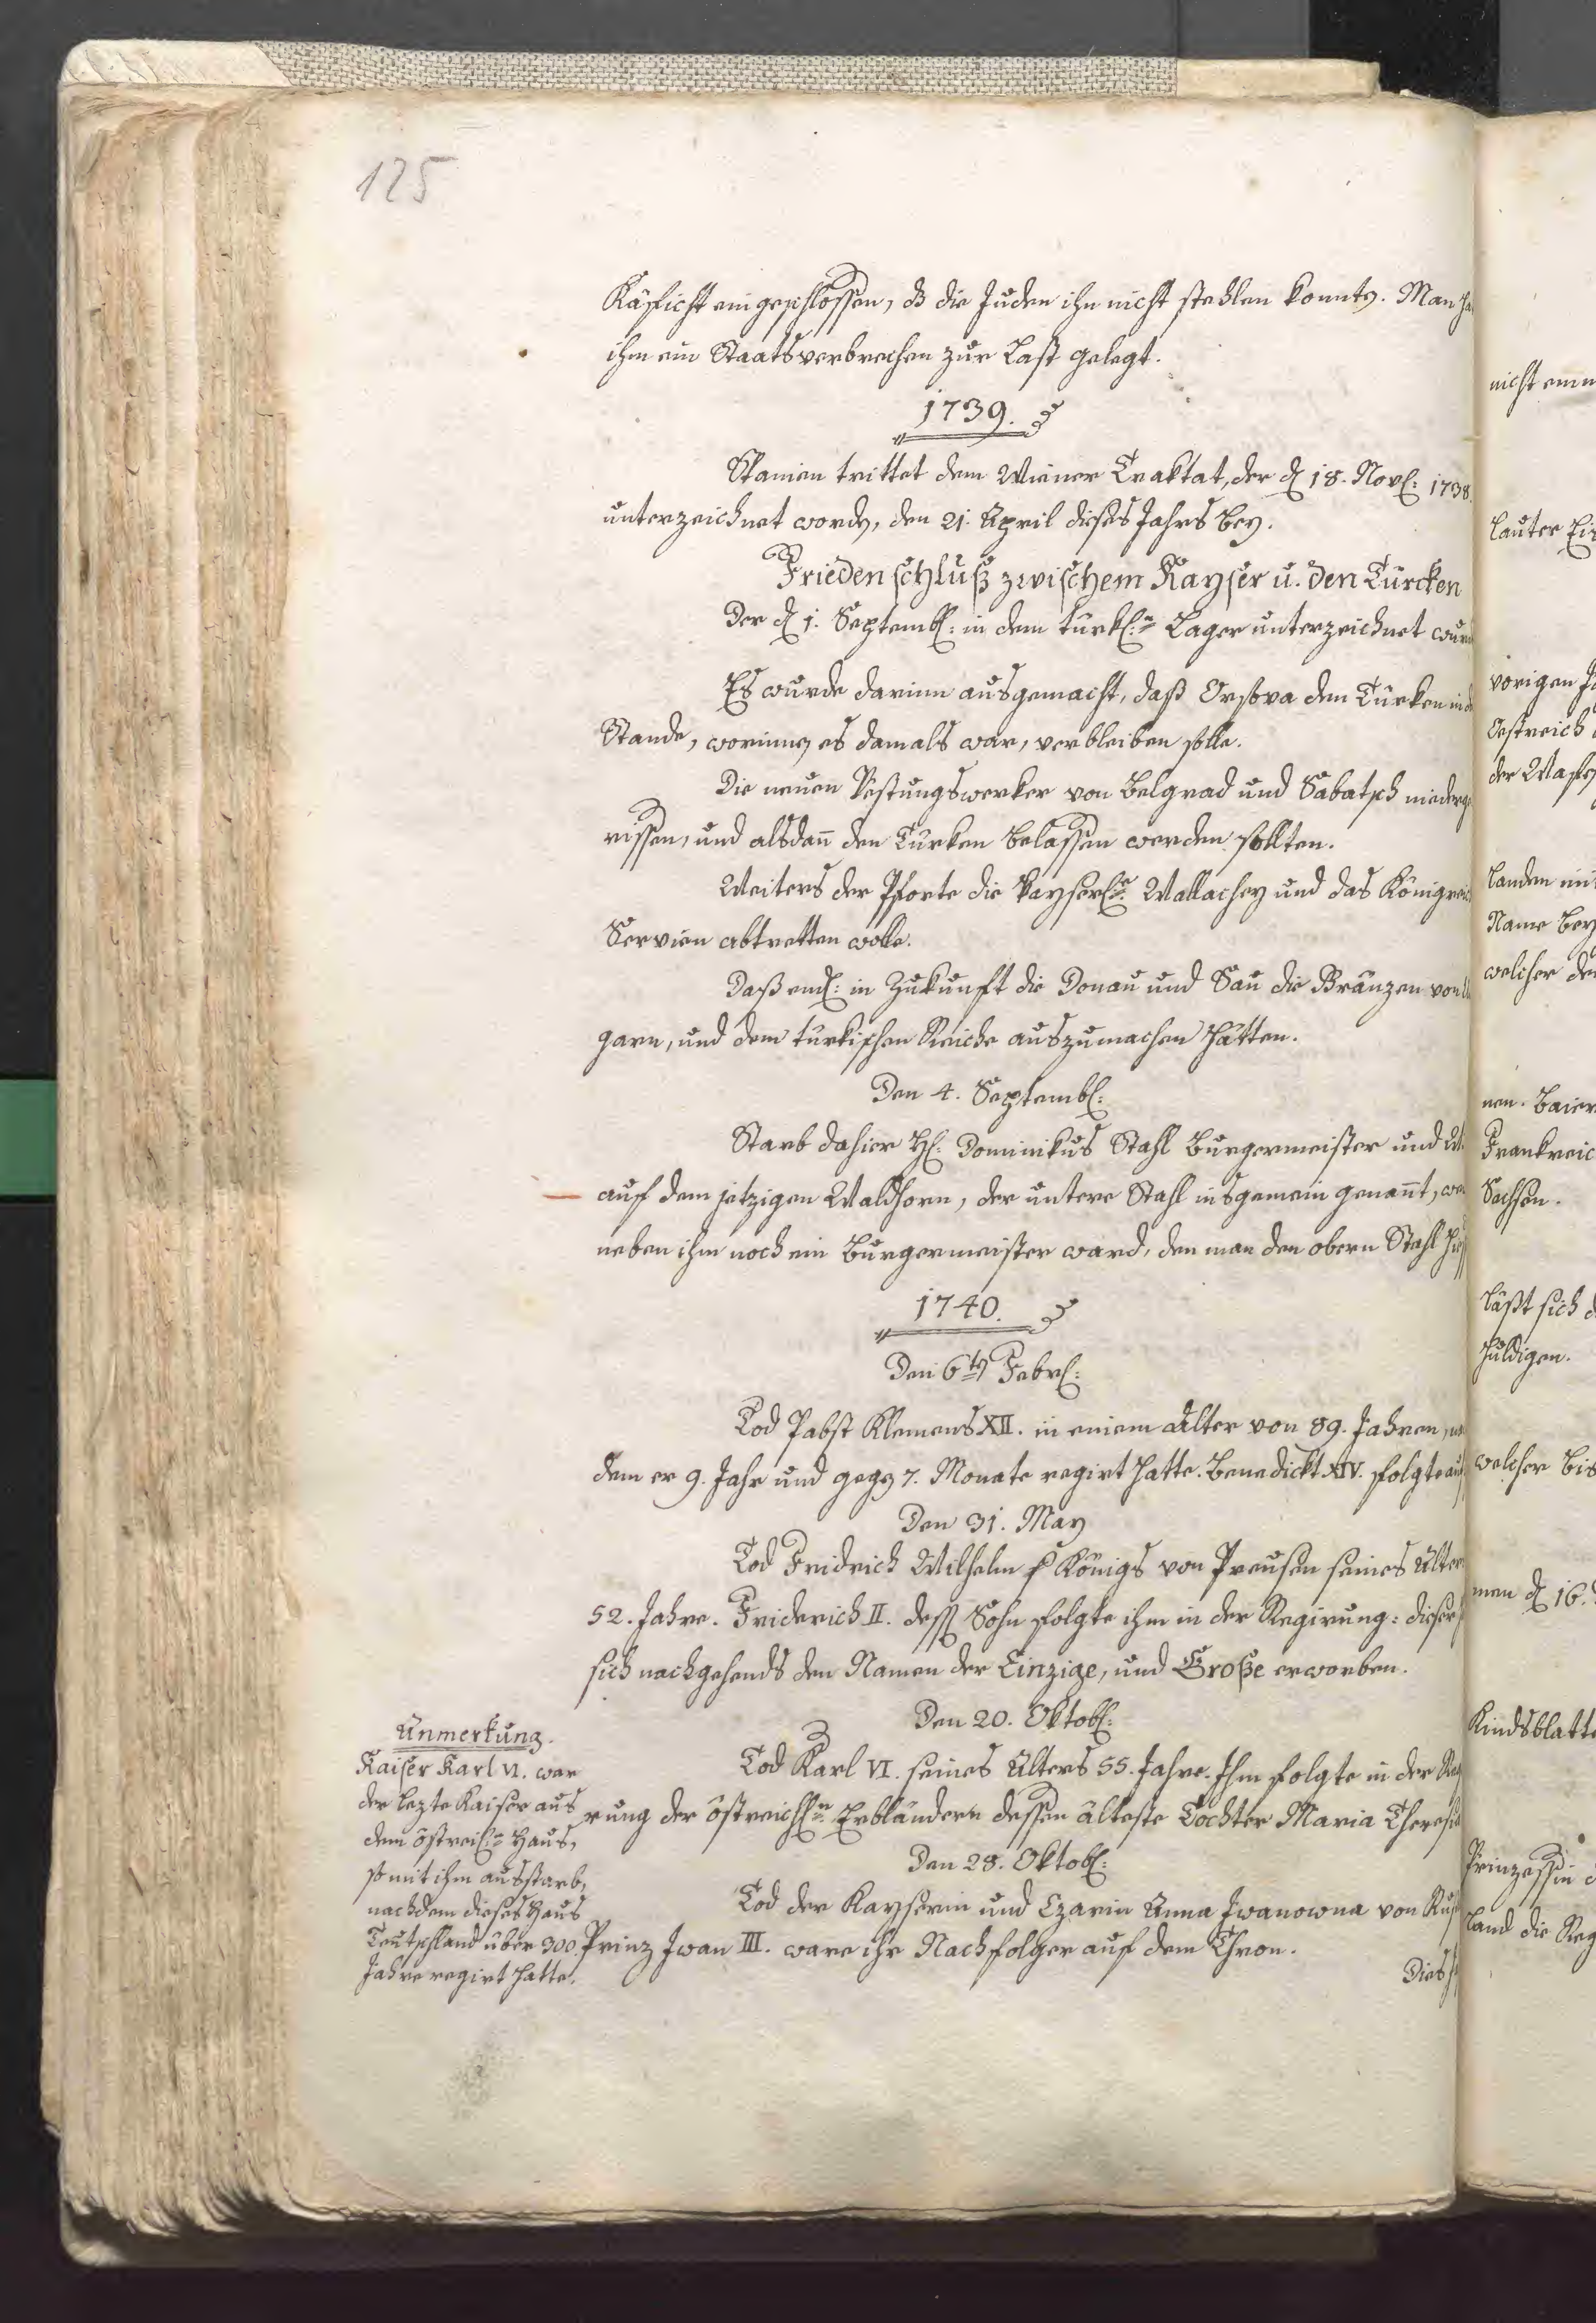 125
Käficht eingeschlossen, daß die Juden ihn nicht stehlen konnten. Man ha
ihm ein Staatsverbrechen zur Last gelegt.
1739.
Spanien trittet dem Wiener Traktat, der d. 18. Nov: 1738.
unterzeichnet worden, den 21. April dieses Jahrs bey.
Friedenschluß zwischem Kayser u. den Türcken
Der d. 1. Septemb: in dem türk:n Lager unterzeichnet wurd
Es wurde darinn ausgemacht, daß Orsova den Türken in d
Stande, worinnen es damals war, verbleiben solle.
Die neuen Vestungswerker von Belgrad und Sabatsch niederge
rissen, und alsdañ den Türken belassen werden sollten.
Weiters der Pforte die kayserl:e Wallachey und das Königreich
Servien abtretten wolle.
Daß endl: in Zukunft die Donau und Sau die Gränzen von U
garn, und dem türkischen Reiche auszumachen hätten.
Den 4. Septemb:
Starb dahier H: Dominikus Stahl Burgermeister und W
auf dem jetzigen Waldhorn, der untere Stahl insgemein genañt, we
neben ihm noch ein Burgermeister ward, den man den obern Stahl hieß
1740.
Den 6ten Febr:
Tod Pabst Klemens XII. in einem Alter von 89. Jahren, na
dem er 9. Jahr und gegen 7. Monate regirt hatte. Benedickt XIV. folgte auf
Den 31. May
Tod Fridrich Wilhelm Königs von Preusen seines Alter
52. Jahre. Friderich II. dess Sohn folgte ihm in der Regirung: dieser
sich nachgehends den Namen der Einzige, und Große erworben.
Den 20. Oktob:
Tod Karl VI. seines Alters 55. Jahre. Ihm folgte in der Reg
rung der östreichl:n Erbländern dessen älteste Tochter Maria Theresia
Den 28. Oktob:
Tod der Kayserin und Czarin Anna Iwanowna von Ruß
Prinz Iwan III. ware ihr Nachfolger auf dem Thron.
Dies
Anmerkung.
Kaiser Karl VI. war
der lezte Kaiser aus
dem östreich:n Haus,
so mit ihm ausstarb,
nachdem dieses Haus
Teutschland über 300
Jahre regirt hatte.
nicht
lauter
vorigen
Oestreich
der Waffen
Landen mit
Name bey
welcher
nen. Baiern
Frankreich
Sachsen.
läßt sich
huldigen.
welcher bis
men d. 16.
Kindsblatte
Prinzessin
land die Reg